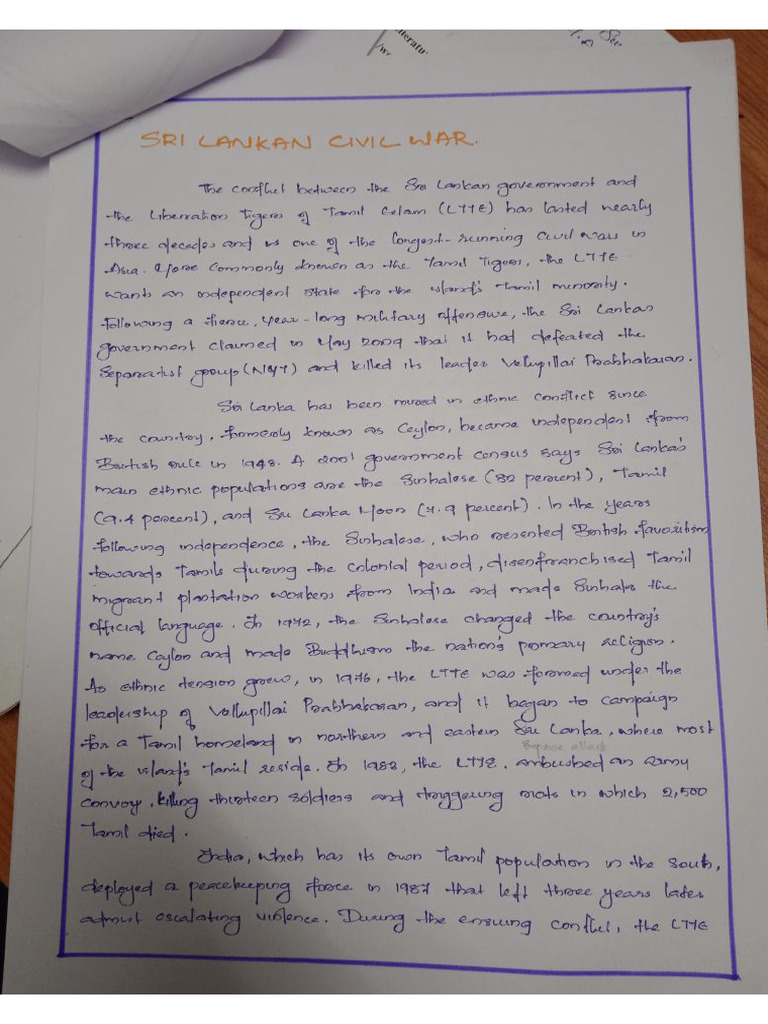 neratu
SRI LANKAN CIVIL WAR.
The conflict between the Sri Lankan government and
the Liberration Tigers of Tamil Eelam (LTTE) has lasted nearly
three decades and is one of the longest-running civil wars in
Asia. More commonly known as the Tamil Tigers, the LTTE
wants an independent state for the island's Tamil minority.
Following a fierce, year-long military offensive, the Sri Lankan
government claimed in May 2009 that it had defeated the
separatist group (NYT) and killed its leader Vellupillai Prabhakaran.
Sri Lanka has been mired in ethnic conflict since
the country, formerly known as Ceylon, became independent from
British rule in 1948. A 2001 government census says Sri Lanka's
main ethnic populations are the Sinhalese (82 percent), Tamil
(9.4 percent), and Sri Lanka Moor (7.9 percent). In the years
following independence, the Sinhalese, who resented British favoritism
towards Tamils during the colonial period, disenfranchised Tamil
migrant plantation workers from India and made Sinhala the
official language. In 1972, the Sinhalese changed the country's
name Ceylon and made Buddhism the nation's primary religion.
As ethnic tension grew, in 1976, the LTTE was formed under the
leadership of Vellupillai Prabhakaran, and it began to campaign
for a Tamil homeland in northern and eastern Sri Lanka, where most
surprise attack
of the island's Tamil reside. In 1983, the LTTE. ambushed an army
convoy, killing thirteen soldiers and triggering riots in which 2,500
Tamil died.
India, which has its own Tamil population in the south,
deployed a peacekeeping force in 1987 that left three years later
admist escalating violence. During the ensuing conflict, the LTTE